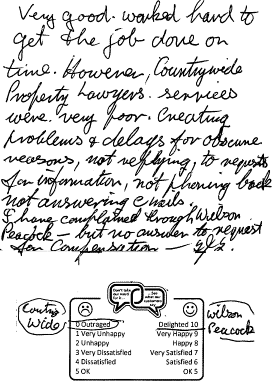 Very good. worked hard to
get the job done on
time. However, Countrywide
Property Lawyers. services
were very poor. Creating
problems & delays for obscure
reasons, not replying, to requests
for information, not phoning back
not answering emails.
I have complained through Wilson
Peacock – but no answer to request
for Compensation –
Country
Wide
Wilson
Peacock
0 Outraged
1 Very Unhappy
2 Unhappy
3 Very Dissatisfied
4 Dissatisfied
5 OK
Delighted 10
Very Happy 9
Happy 8
Very Satisfied 7
Satisfied 6
OK 5